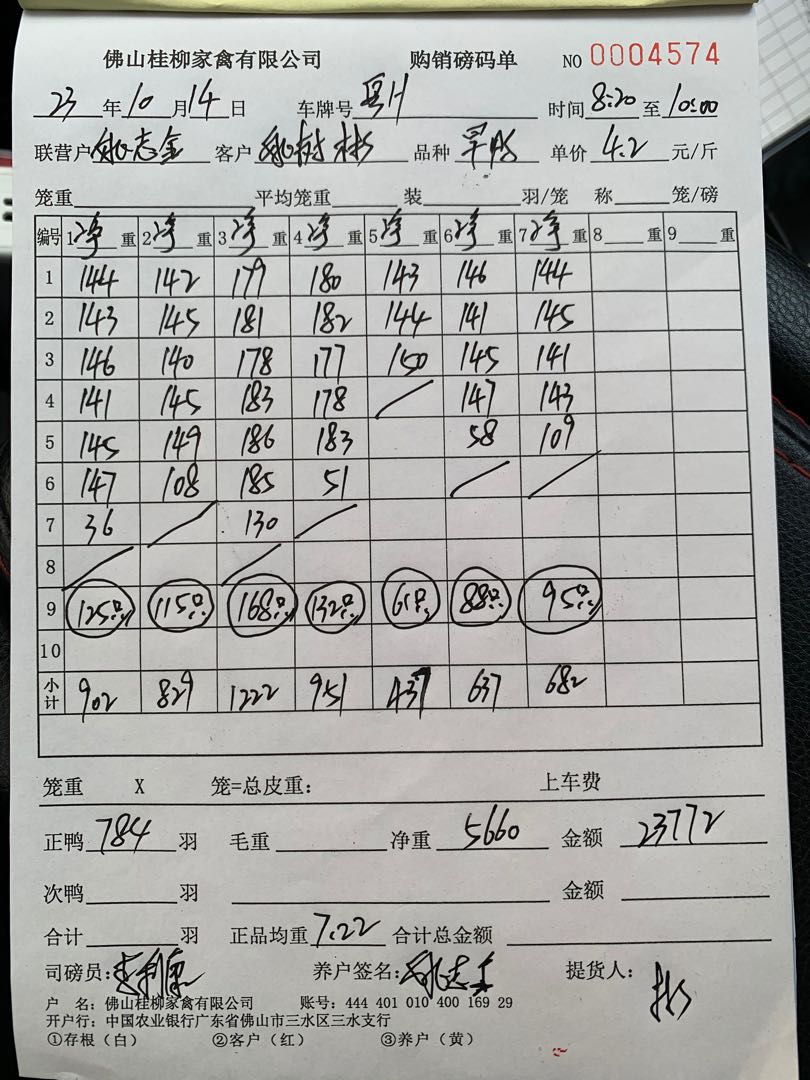 佛山桂柳家禽有限公司 购销磅码单 NO 0004574
23 年 10 月 14 日 车牌号 时间 8:20 至 10:00
联营户 姚志金 客户 姚树彬 品种 旱鸭 单价 4.2 元/斤
笼重 平均笼重 装 羽/笼 称 笼/磅
编号 1 净 重 2 净 重 3 净 重 4 净 重 5 净 重 6 净 重 7 净 重 8 重 9 重
1 144 142 179 180 143 146 144
2 143 145 181 182 144 141 145
3 146 140 178 177 150 145 141
4 141 145 183 178 147 143
5 145 149 186 183 58 109
6 147 108 185 51
7 36 130
8
9 125只 115只 168只 132只 61只 88只 95只
10
小计 902 829 1222 951 437 637 682
笼重 X 笼=总皮重: 上车费
正鸭 784 羽 毛重 净重 5660 金额 23772
次鸭 羽 金额
合计 羽 正品均重 7.22 合计总金额
司磅员: 养户签名: 姚志金 提货人: 彬
户 名: 佛山桂柳家禽有限公司 账号: 444 401 010 400 169 29
开户行: 中国农业银行广东省佛山市三水区三水支行
①存根（白） ②客户（红） ③养户（黄）